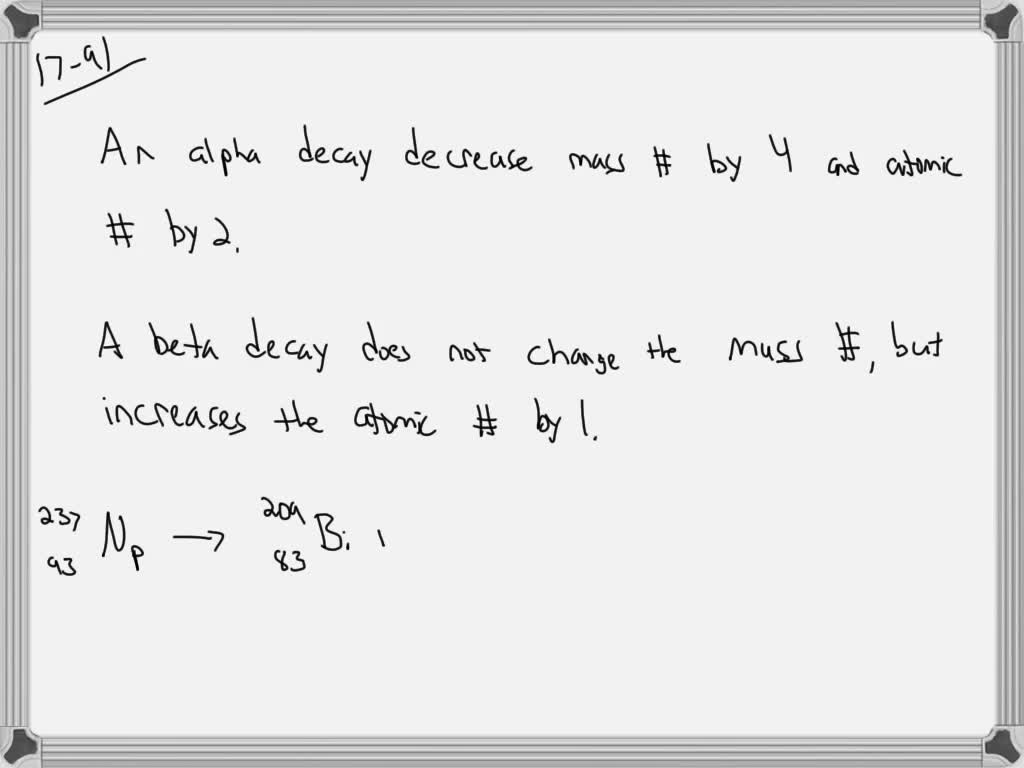 17-91
An alpha decay decrease mass # by 4 and atomic
# by 2.
A beta decay does not change the mass #, but
increases the atomic # by 1.
237 93 Np → 209 83 Bi